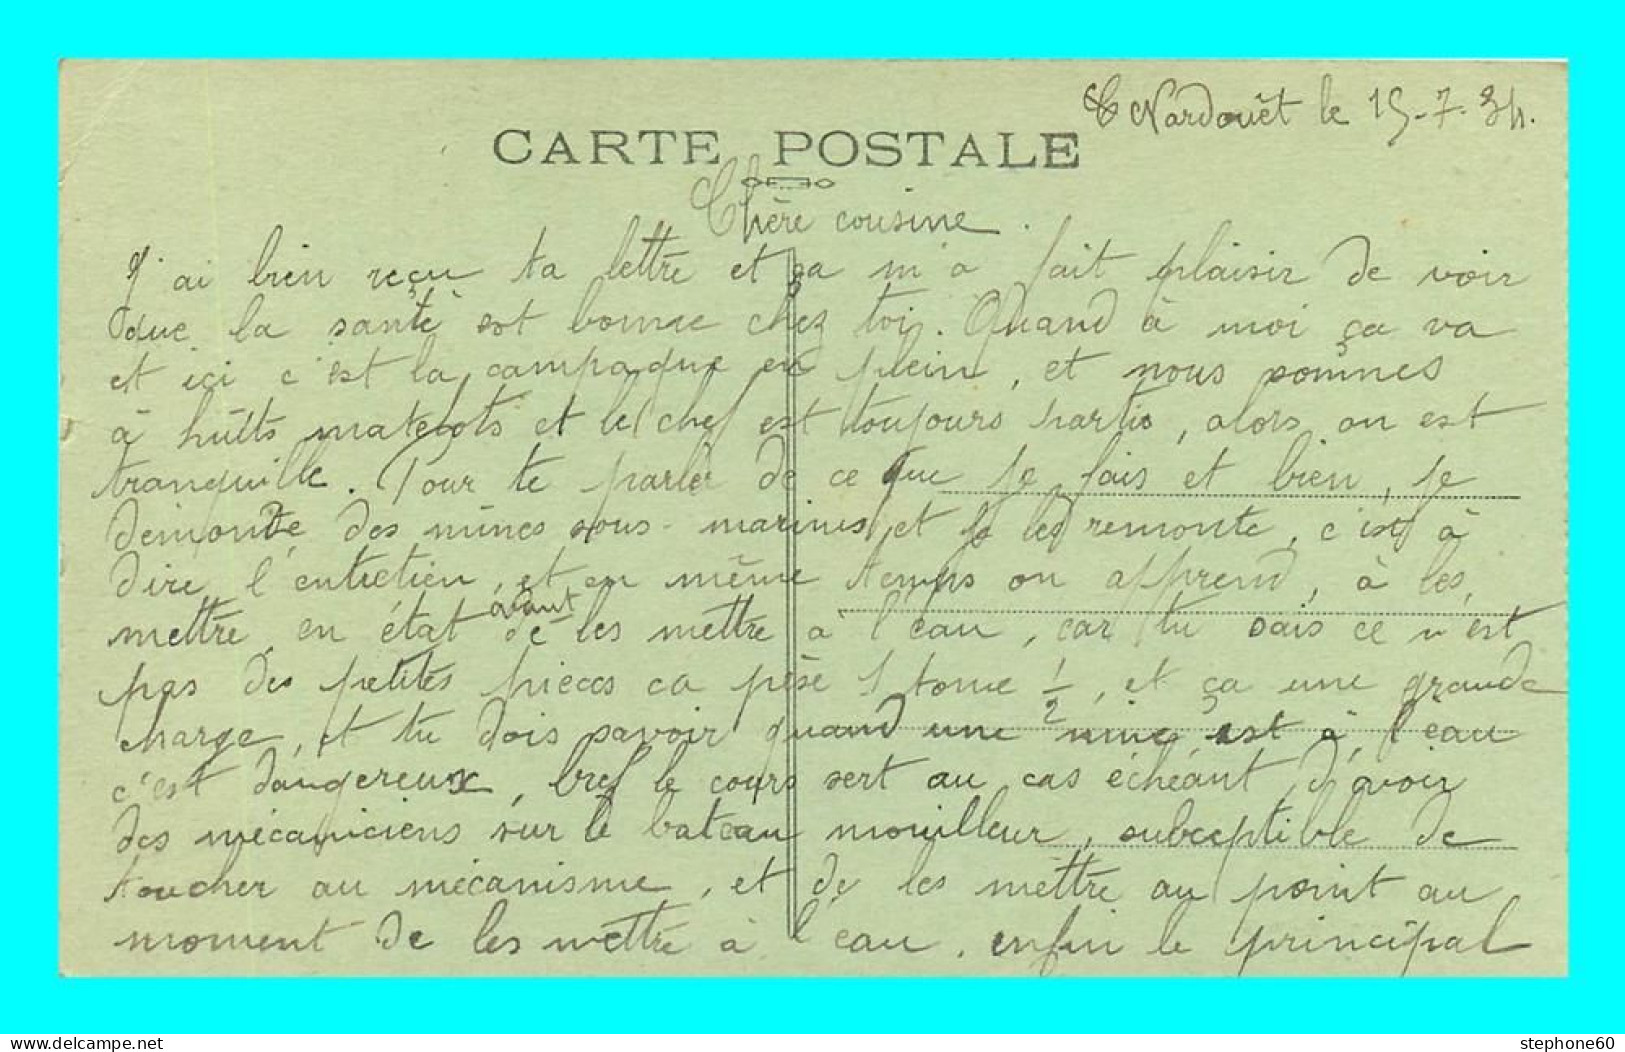 Nardouët le 15-7-34.
CARTE POSTALE
Chère cousine.
J'ai bien reçu ta lettre et ça m'a fait plaisir de voir
que la santé est bonne chez toi. Quand à moi ça va
et ici c'est la campagne en plein, et nous sommes
à huits matelots et le chef est toujours partis, alors on est
tranquille. Pour te parler de ce que je fais et bien, je
démonte des mines sous-marines et je les remonte, c'est à
dire l'entretien, et en même temps on apprend, à les
mettre en état avant de les mettre à l'eau, car tu sais ce n'est
pas des petites pièces ca pèse 1 tonne 1/2, et ça une grande
charge, et tu dois savoir quand une mine est à l'eau
c'est dangereux, bref le cours sert au cas échéant d'avoir
des mécaniciens sur le bateau mouilleur, subceptible de
toucher au mécanisme, et de les mettre au point au
moment de les mettre à l'eau. enfin le principal
delcampe.net
stephone60